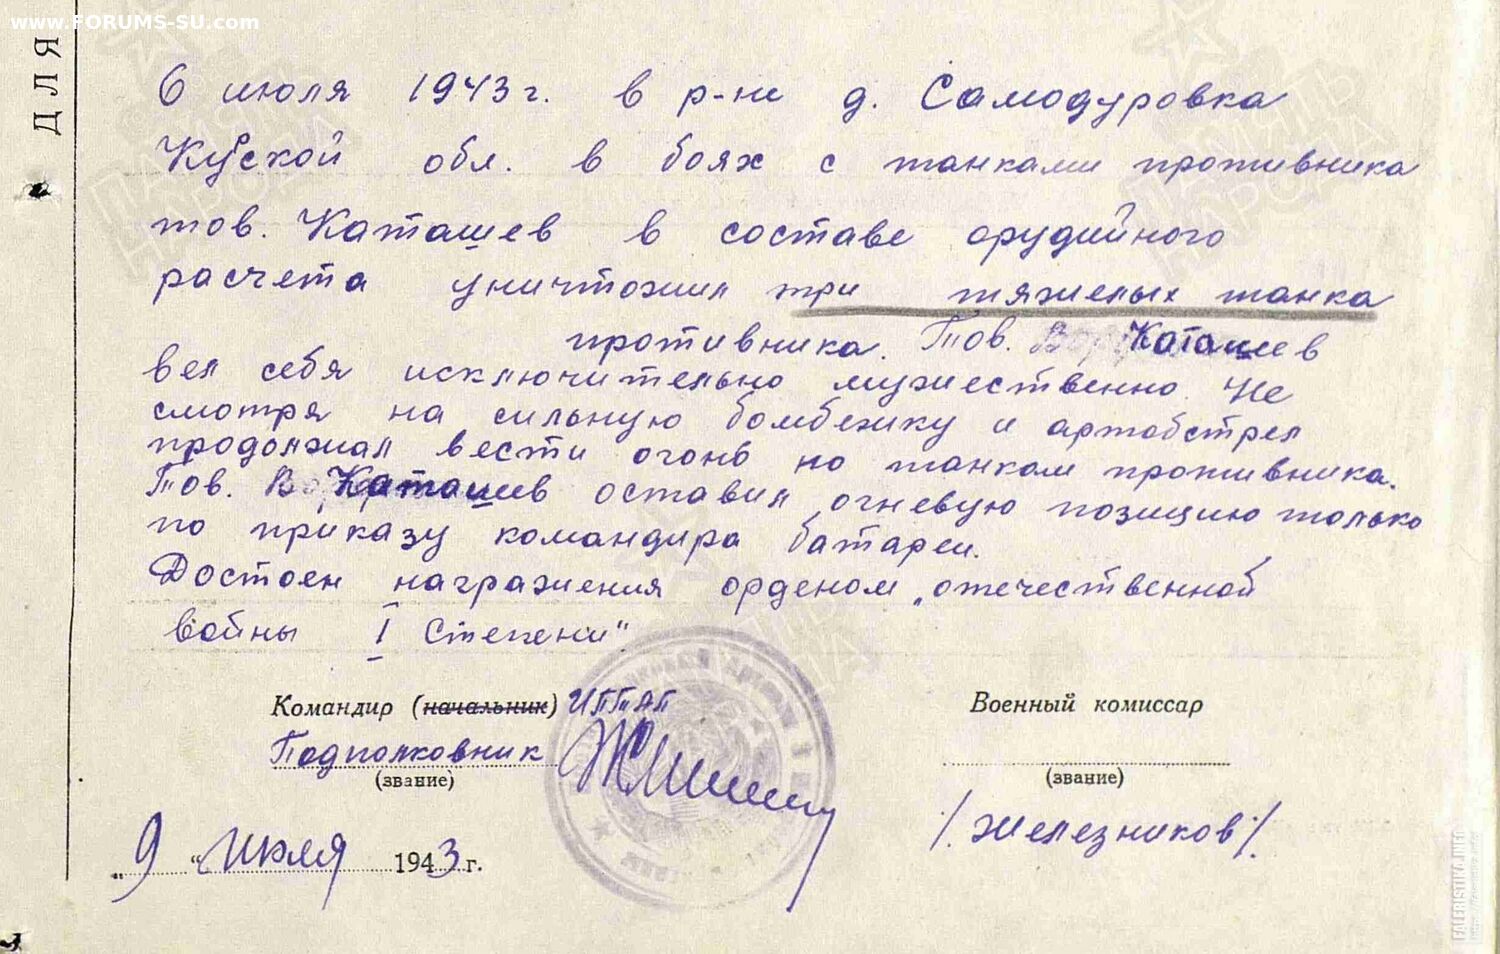 www.FORUMS-SU.com
ДЛЯ
6 июля 1943 г. в р-не д. Самодуровка
Курской обл. в боях с танками противника
тов. Каташев в составе орудийного
расчета уничтожил три тяжелых танка
противника. Тов. Каташев
вел себя исключительно мужественно. Не
смотря на сильную бомбежку и артобстрел
продолжал вести огонь по танкам противника.
Тов. Каташев оставил огневую позицию только
по приказу командира батареи.
Достоен награждения орденом „отечественной
войны I степени"
Командир (начальник) ИПТАП
Военный комиссар
Подполковник
(звание)
(звание)
/Железников/.
„9 "июля 1943 г.
FALERISTIKA.INFO